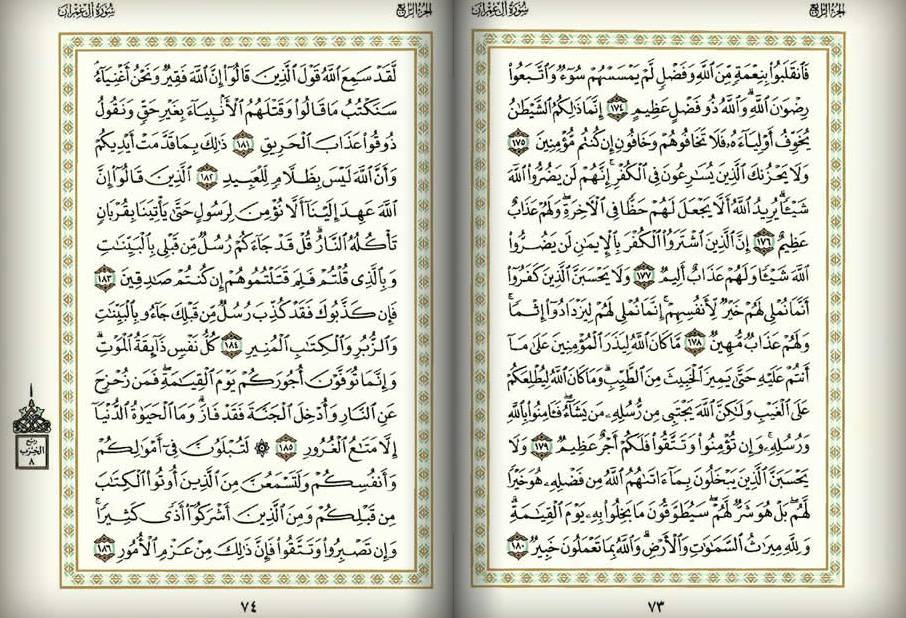 الجزء الرابع
سورة آل عمران
فَٱنقَلَبُوا۟ بِنِعْمَةٍ مِّنَ ٱللَّهِ وَفَضْلٍ لَّمْ يَمْسَسْهُمْ سُوٓءٌ وَٱتَّبَعُوا۟
رِضْوَٰنَ ٱللَّهِ ۗ وَٱللَّهُ ذُو فَضْلٍ عَظِيمٍ ١٧٤ إِنَّمَا ذَٰلِكُمُ ٱلشَّيْطَٰنُ
يُخَوِّفُ أَوْلِيَآءَهُۥ فَلَا تَخَافُوهُمْ وَخَافُونِ إِن كُنتُم مُّؤْمِنِينَ ١٧٥
وَلَا يَحْزُنكَ ٱلَّذِينَ يُسَٰرِعُونَ فِى ٱلْكُفْرِ ۚ إِنَّهُمْ لَن يَضُرُّوا۟ ٱللَّهَ
شَيْـًٔا ۗ يُرِيدُ ٱللَّهُ أَلَّا يَجْعَلَ لَهُمْ حَظًّا فِى ٱلْءَاخِرَةِ ۖ وَلَهُمْ عَذَابٌ
عَظِيمٌ ١٧٦ إِنَّ ٱلَّذِينَ ٱشْتَرَوُا۟ ٱلْكُفْرَ بِٱلْإِيمَٰنِ لَن يَضُرُّوا۟
ٱللَّهَ شَيْـًٔا وَلَهُمْ عَذَابٌ أَلِيمٌ ١٧٧ وَلَا يَحْسَبَنَّ ٱلَّذِينَ كَفَرُوٓا۟
أَنَّمَا نُمْلِى لَهُمْ خَيْرٌ لِّأَنفُسِهِمْ ۚ إِنَّمَا نُمْلِى لَهُمْ لِيَزْدَادُوٓا۟ إِثْمًا ۚ
وَلَهُمْ عَذَابٌ مُّهِينٌ ١٧٨ مَّا كَانَ ٱللَّهُ لِيَذَرَ ٱلْمُؤْمِنِينَ عَلَىٰ مَآ
أَنتُمْ عَلَيْهِ حَتَّىٰ يَمِيزَ ٱلْخَبِيثَ مِنَ ٱلطَّيِّبِ ۗ وَمَا كَانَ ٱللَّهُ لِيُطْلِعَكُمْ
عَلَى ٱلْغَيْبِ وَلَٰكِنَّ ٱللَّهَ يَجْتَبِى مِن رُّسُلِهِۦ مَن يَشَآءُ ۖ فَـَٔامِنُوا۟ بِٱللَّهِ
وَرُسُلِهِۦ ۚ وَإِن تُؤْمِنُوا۟ وَتَتَّقُوا۟ فَلَكُمْ أَجْرٌ عَظِيمٌ ١٧٩ وَلَا
يَحْسَبَنَّ ٱلَّذِينَ يَبْخَلُونَ بِمَآ ءَاتَىٰهُمُ ٱللَّهُ مِن فَضْلِهِۦ هُوَ خَيْرًا
لَّهُم ۖ بَلْ هُوَ شَرٌّ لَّهُمْ ۖ سَيُطَوَّقُونَ مَا بَخِلُوا۟ بِهِۦ يَوْمَ ٱلْقِيَٰمَةِ ۗ
وَلِلَّهِ مِيرَٰثُ ٱلسَّمَٰوَٰتِ وَٱلْأَرْضِ ۗ وَٱللَّهُ بِمَا تَعْمَلُونَ خَبِيرٌ ١٨٠
٧٣
الجزء الرابع
سورة آل عمران
لَّقَدْ سَمِعَ ٱللَّهُ قَوْلَ ٱلَّذِينَ قَالُوٓا۟ إِنَّ ٱللَّهَ فَقِيرٌ وَنَحْنُ أَغْنِيَآءُ ۘ
سَنَكْتُبُ مَا قَالُوا۟ وَقَتْلَهُمُ ٱلْأَنۢبِيَآءَ بِغَيْرِ حَقٍّ وَنَقُولُ
ذُوقُوا۟ عَذَابَ ٱلْحَرِيقِ ١٨١ ذَٰلِكَ بِمَا قَدَّمَتْ أَيْدِيكُمْ
وَأَنَّ ٱللَّهَ لَيْسَ بِظَلَّامٍ لِّلْعَبِيدِ ١٨٢ ٱلَّذِينَ قَالُوٓا۟ إِنَّ
ٱللَّهَ عَهِدَ إِلَيْنَآ أَلَّا نُؤْمِنَ لِرَسُولٍ حَتَّىٰ يَأْتِيَنَا بِقُرْبَانٍ
تَأْكُلُهُ ٱلنَّارُ ۗ قُلْ قَدْ جَآءَكُمْ رُسُلٌ مِّن قَبْلِى بِٱلْبَيِّنَٰتِ
وَبِٱلَّذِى قُلْتُمْ فَلِمَ قَتَلْتُمُوهُمْ إِن كُنتُمْ صَٰدِقِينَ ١٨٣
فَإِن كَذَّبُوكَ فَقَدْ كُذِّبَ رُسُلٌ مِّن قَبْلِكَ جَآءُو بِٱلْبَيِّنَٰتِ
وَٱلزُّبُرِ وَٱلْكِتَٰبِ ٱلْمُنِيرِ ١٨٤ كُلُّ نَفْسٍ ذَآئِقَةُ ٱلْمَوْتِ ۗ
وَإِنَّمَا تُوَفَّوْنَ أُجُورَكُمْ يَوْمَ ٱلْقِيَٰمَةِ ۖ فَمَن زُحْزِحَ
عَنِ ٱلنَّارِ وَأُدْخِلَ ٱلْجَنَّةَ فَقَدْ فَازَ ۗ وَمَا ٱلْحَيَوٰةُ ٱلدُّنْيَآ
إِلَّا مَتَٰعُ ٱلْغُرُورِ ١٨٥ ۞ لَتُبْلَوُنَّ فِىٓ أَمْوَٰلِكُمْ
وَأَنفُسِكُمْ وَلَتَسْمَعُنَّ مِنَ ٱلَّذِينَ أُوتُوا۟ ٱلْكِتَٰبَ
مِن قَبْلِكُمْ وَمِنَ ٱلَّذِينَ أَشْرَكُوٓا۟ أَذًى كَثِيرًا ۚ
وَإِن تَصْبِرُوا۟ وَتَتَّقُوا۟ فَإِنَّ ذَٰلِكَ مِنْ عَزْمِ ٱلْأُمُورِ ١٨٦
ربع
الحزب
٨
٧٤